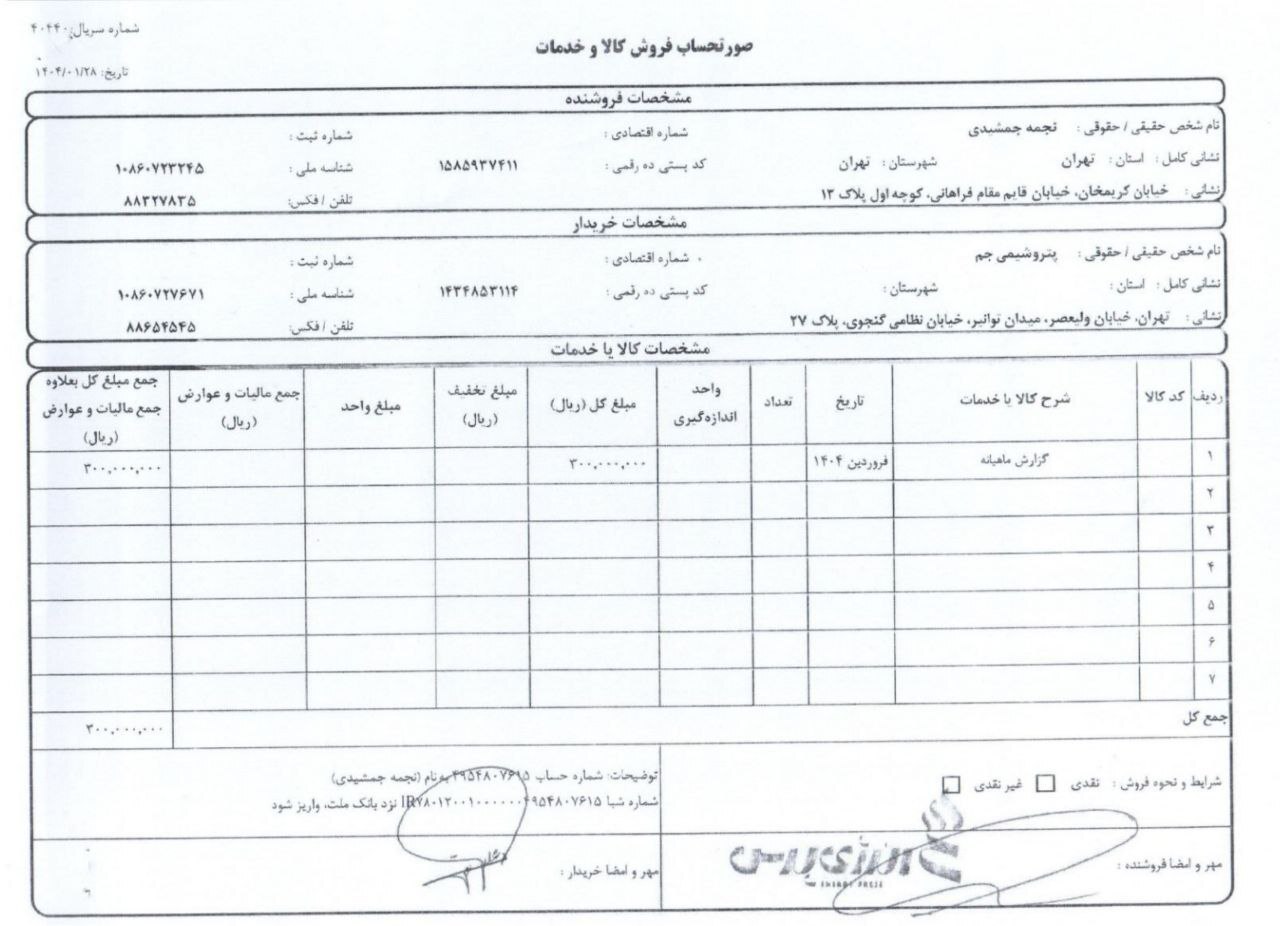 صورتحساب فروش کالا و خدمات
شماره سریال: ۴۰۴۴۰
تاریخ: ۱۴۰۴/۰۱/۲۸
مشخصات فروشنده
نام شخص حقیقی / حقوقی : نجمه جمشیدی شماره اقتصادی : شماره ثبت :
نشانی کامل : استان : تهران شهرستان : تهران کد پستی ده رقمی : ۱۵۸۵۹۳۷۴۱۱ شناسه ملی : ۱۰۸۶۰۷۲۳۲۴۵
نشانی : خیابان کریمخان، خیابان قایم مقام فراهانی، کوچه اول پلاک ۱۳ تلفن / فکس: ۸۸۳۲۷۸۳۵
مشخصات خریدار
نام شخص حقیقی / حقوقی : پتروشیمی جم شماره اقتصادی : شماره ثبت :
نشانی کامل : استان : شهرستان : کد پستی ده رقمی : ۱۴۳۴۸۵۳۱۱۴ شناسه ملی : ۱۰۸۶۰۷۲۷۶۷۱
نشانی : تهران، خیابان ولیعصر، میدان توانیر، خیابان نظامی گنجوی، پلاک ۲۷ تلفن / فکس: ۸۸۶۵۴۵۴۵
مشخصات کالا یا خدمات
ردیف کد کالا شرح کالا یا خدمات تاریخ تعداد واحد اندازه‌گیری مبلغ کل (ریال) مبلغ تخفیف (ریال) مبلغ واحد جمع مالیات و عوارض (ریال) جمع مبلغ کل بعلاوه جمع مالیات و عوارض (ریال)
۱ گزارش ماهیانه فروردین ۱۴۰۴ ۳۰۰,۰۰۰,۰۰۰ ۳۰۰,۰۰۰,۰۰۰
۲
۳
۴
۵
۶
۷
جمع کل ۳۰۰,۰۰۰,۰۰۰
شرایط و نحوه فروش : نقدی غیر نقدی
توضیحات: شماره حساب ۴۹۵۴۸۰۷۶۱۵ به نام (نجمه جمشیدی)
شماره شبا IR۷۸۰۱۲۰۰۱۰۰۰۰۰۰۴۹۵۴۸۰۷۶۱۵ نزد بانک ملت، واریز شود
مهر و امضا فروشنده :
انرژی پرس
ENERGY PRESS
مهر و امضا خریدار :